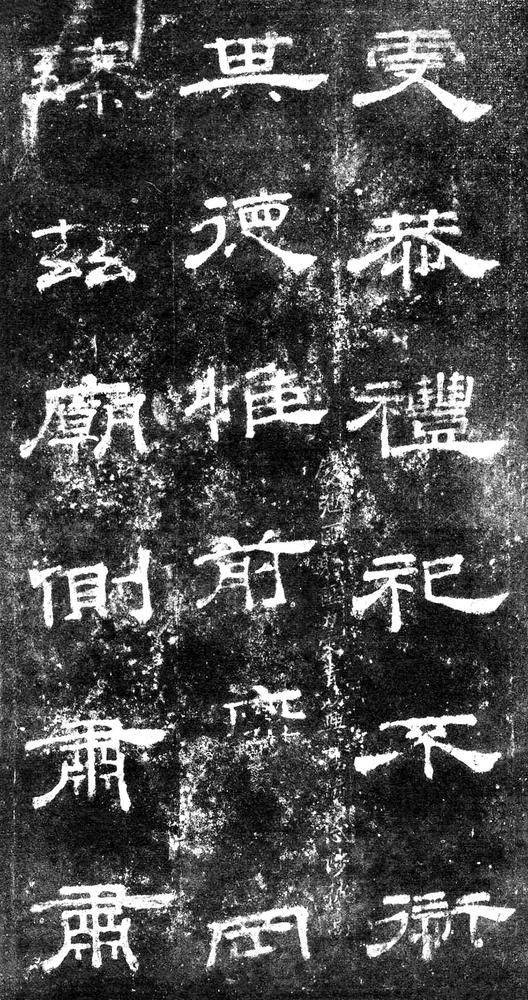 虔恭禮祀不愆
其德惟前廢岡
臻茲廟側肅肅